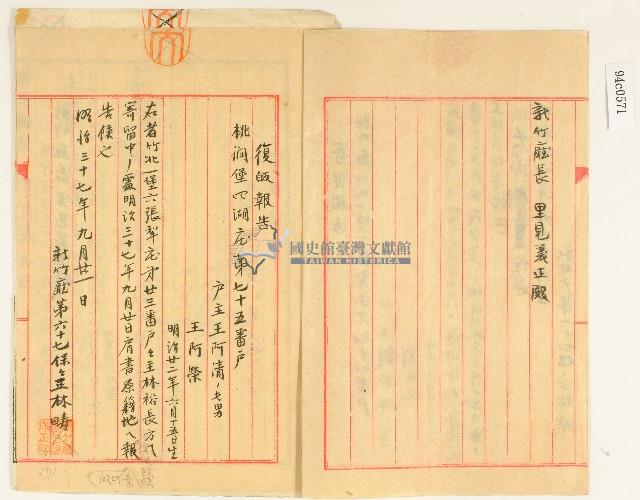 復皈報告
桃澗堡四湖庄第七十五番戶
戶主王阿清ノ七男
王阿榮
明治廿二年六月十五日生
右者竹北一堡六張犁庄第廿三番戶戶主林裕長方ヘ
寄留中ノ處明治三十七年九月廿日
原籍地ヘ報
告候也
明治三十七年九月廿一日
新竹廳第六十七保保正林疇
新竹廳長 里見義正殿
國史館臺灣文獻館
TAIWAN HISTORICA
94c0571